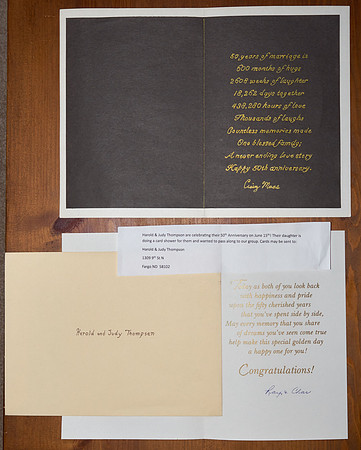 50 years of marriage is
600 months of hugs
2608 weeks of laughter
18,262 days together
438,280 hours of love
Thousands of laughs
Countless memories made
One blessed family;
A never ending love story
Happy 50th anniversary.
Craig Maas
Harold & Judy Thompson are celebrating their 50th Anniversary on June 15th! Their daughter is
doing a card shower for them and wanted to pass along to our group. Cards may be sent to:
Harold & Judy Thompson
1309 9th St N
Fargo ND 58102
Harold and Judy Thompson
May as both of you look back
with happiness and pride
upon the fifty cherished years
that you've spent side by side,
May every memory that you share
of dreams you've seen come true
help make this special golden day
a happy one for you!
Congratulations!